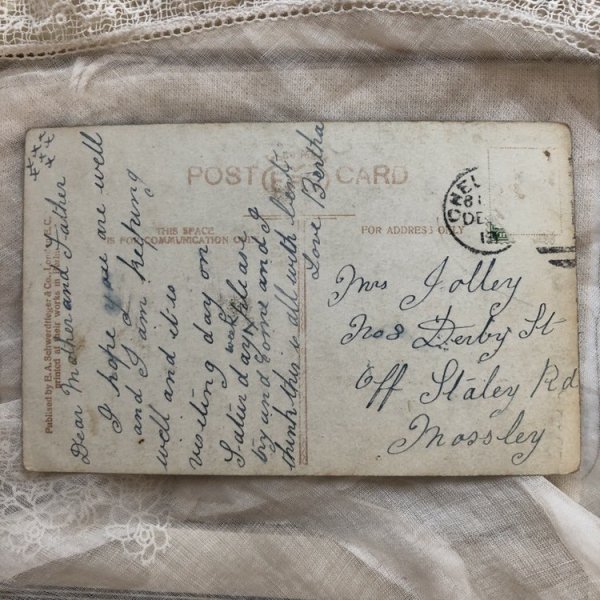 POST CARD
THIS SPACE
IS FOR COMMUNICATION ONLY
FOR ADDRESS ONLY
Published by E. A. Schwerdtfeger & Co., London, E.C.
printed at their works in Berlin
Dear Mother and Father
I hope you are well
and I am keeping
well and it is
visiting day on
Saturday week please
try and come and I
think this is all with
Love Bertha
Mrs Jolley
No 8 Derby St
Off Staley Rd
Mossley